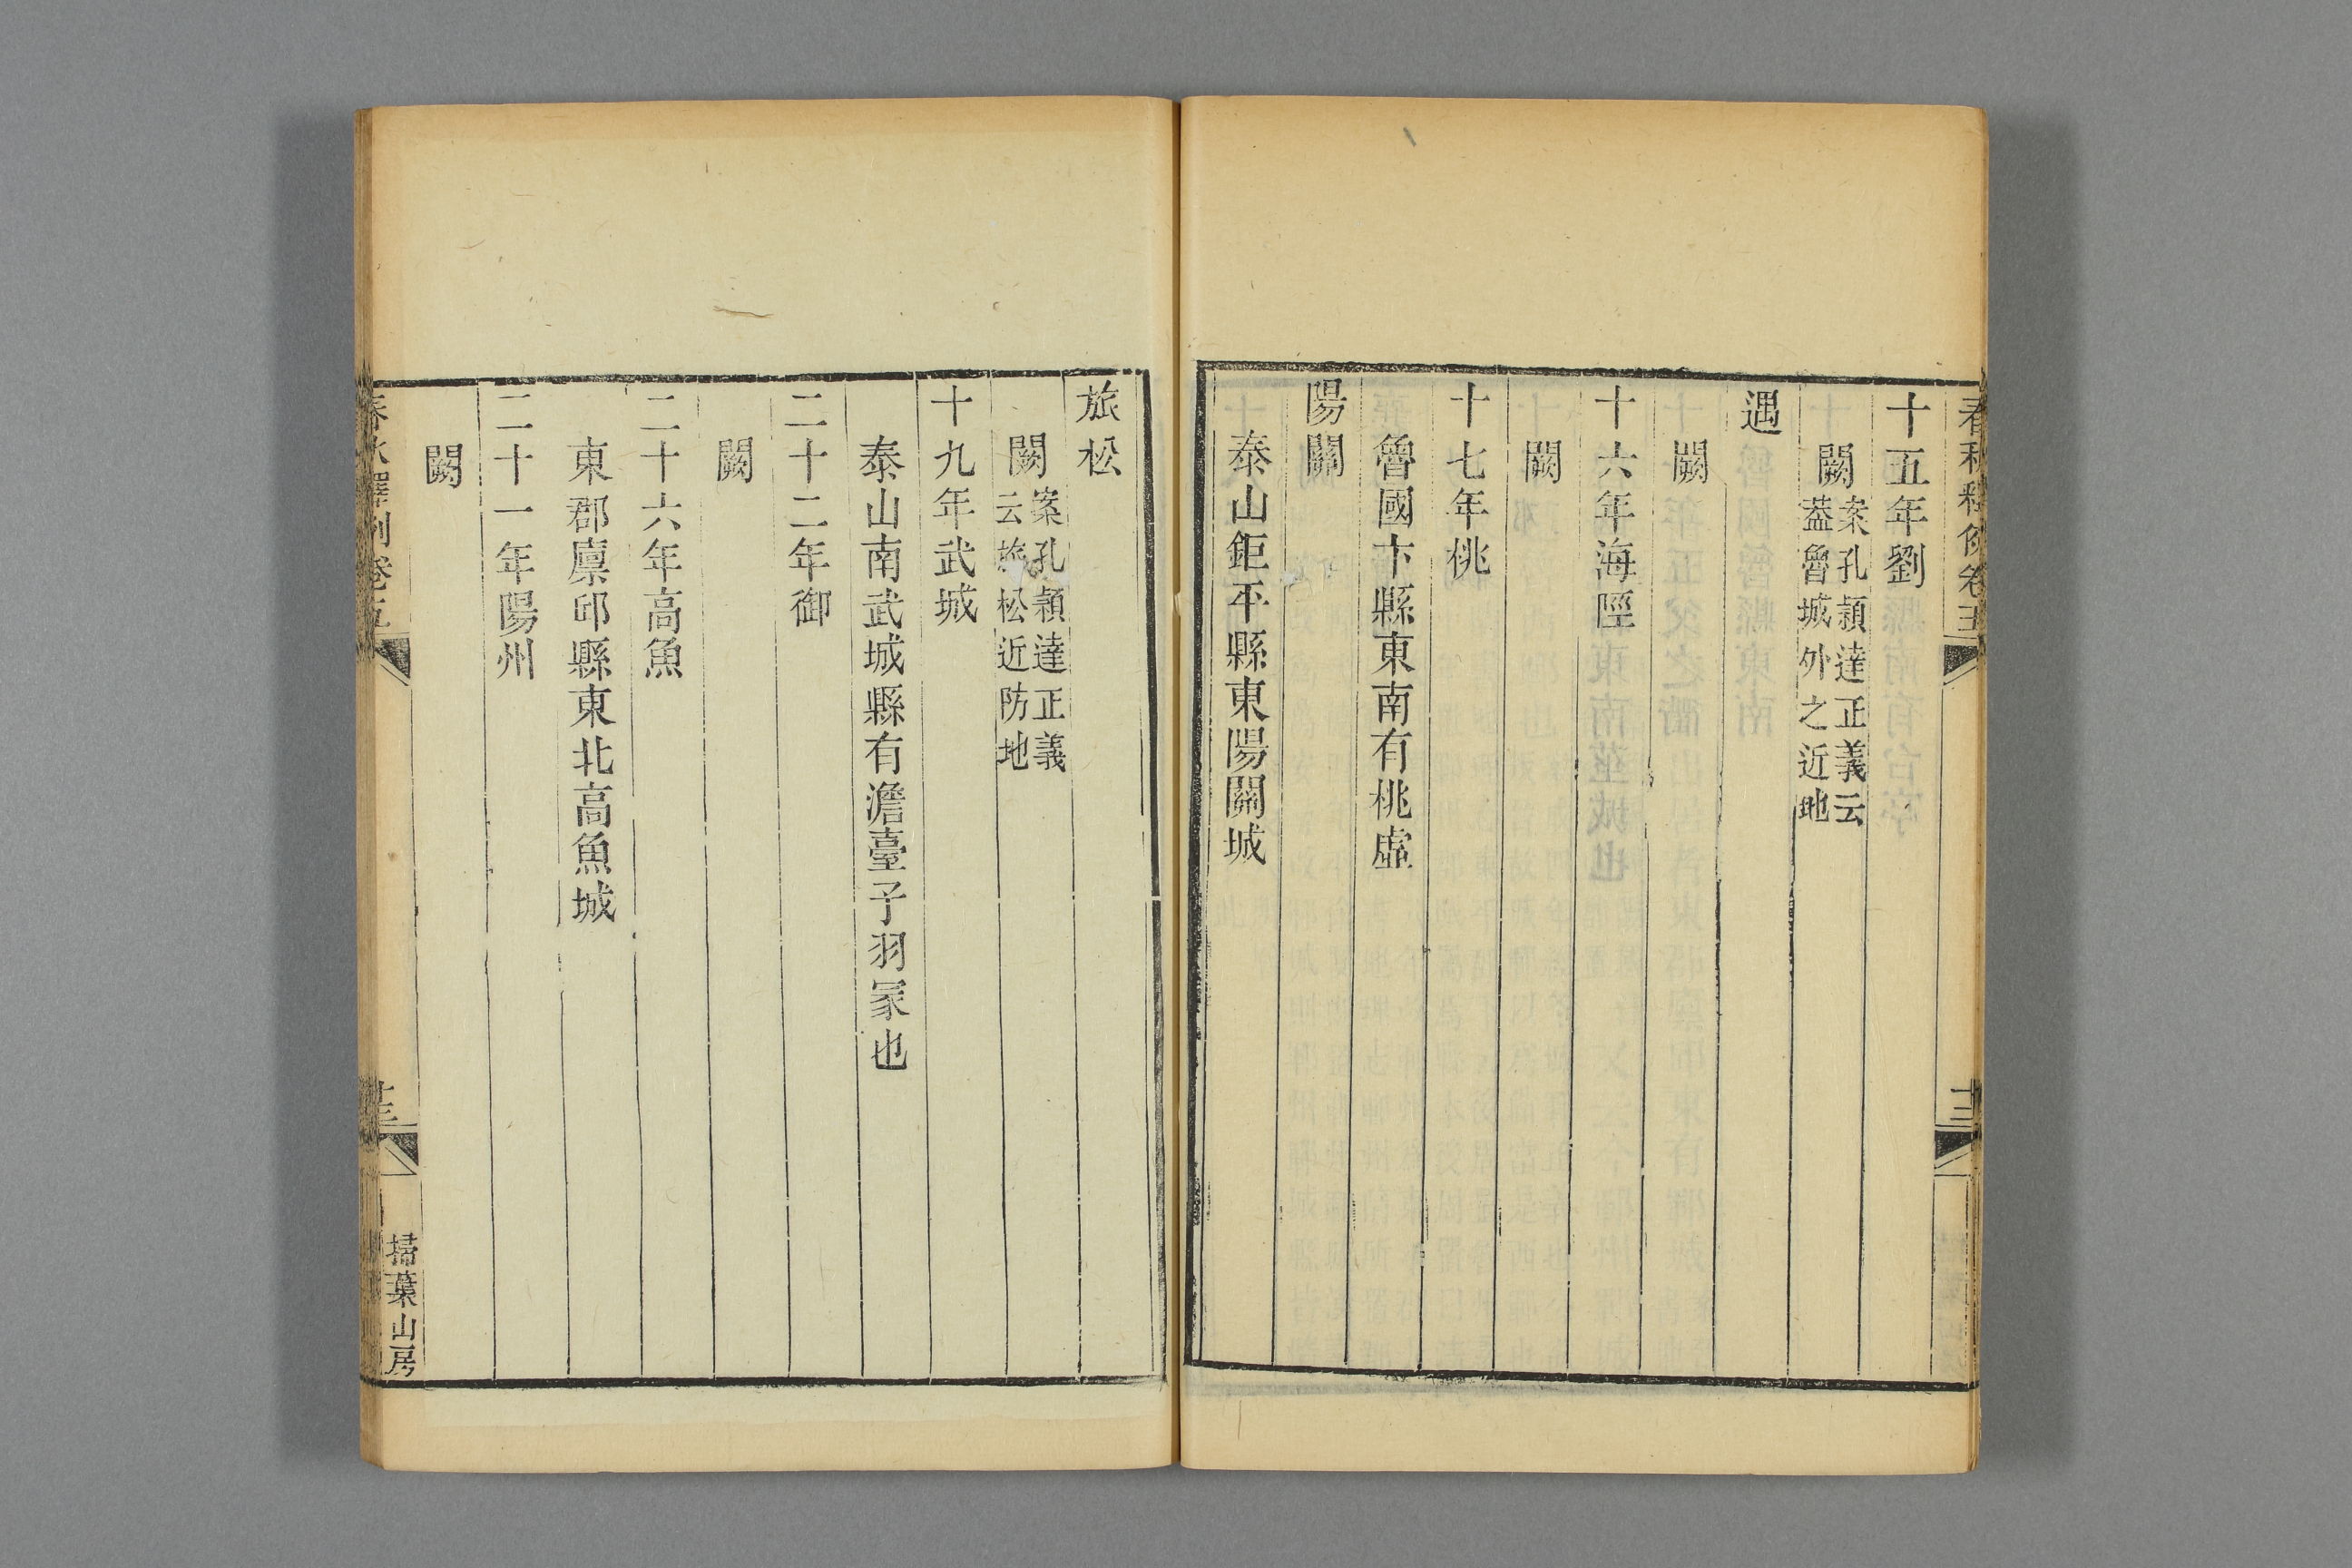 十五年劉
闕案孔穎達正義云
蓋魯城外之近地
遇
闕
十六年海陘
闕
十七年桃
魯國卞縣東南有桃虛
陽關
泰山鉅平縣東陽關城
旅松
闕案孔穎達正義
云旅松近防地
十九年武城
泰山南武城縣有澹臺子羽冢也
二十二年御
闕
二十六年高魚
東郡廩邱縣東北高魚城
二十一年陽州
闕
春秋釋例卷五
掃葉山房